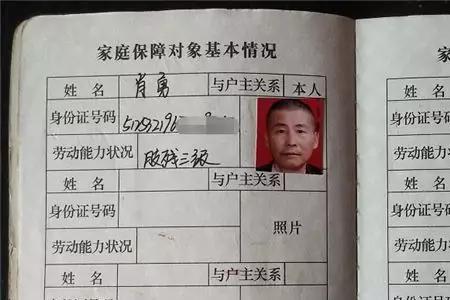 家庭保障对象基本情况
姓名 肖勇 与户主关系 本人
身份证号码
劳动能力状况 肢残三级
姓名 与户主关系
身份证号码 照片
劳动能力状况
姓名 与户主关系
身份证号码
姓
身份证
劳动能
姓
身份证
劳动能
姓
身份证